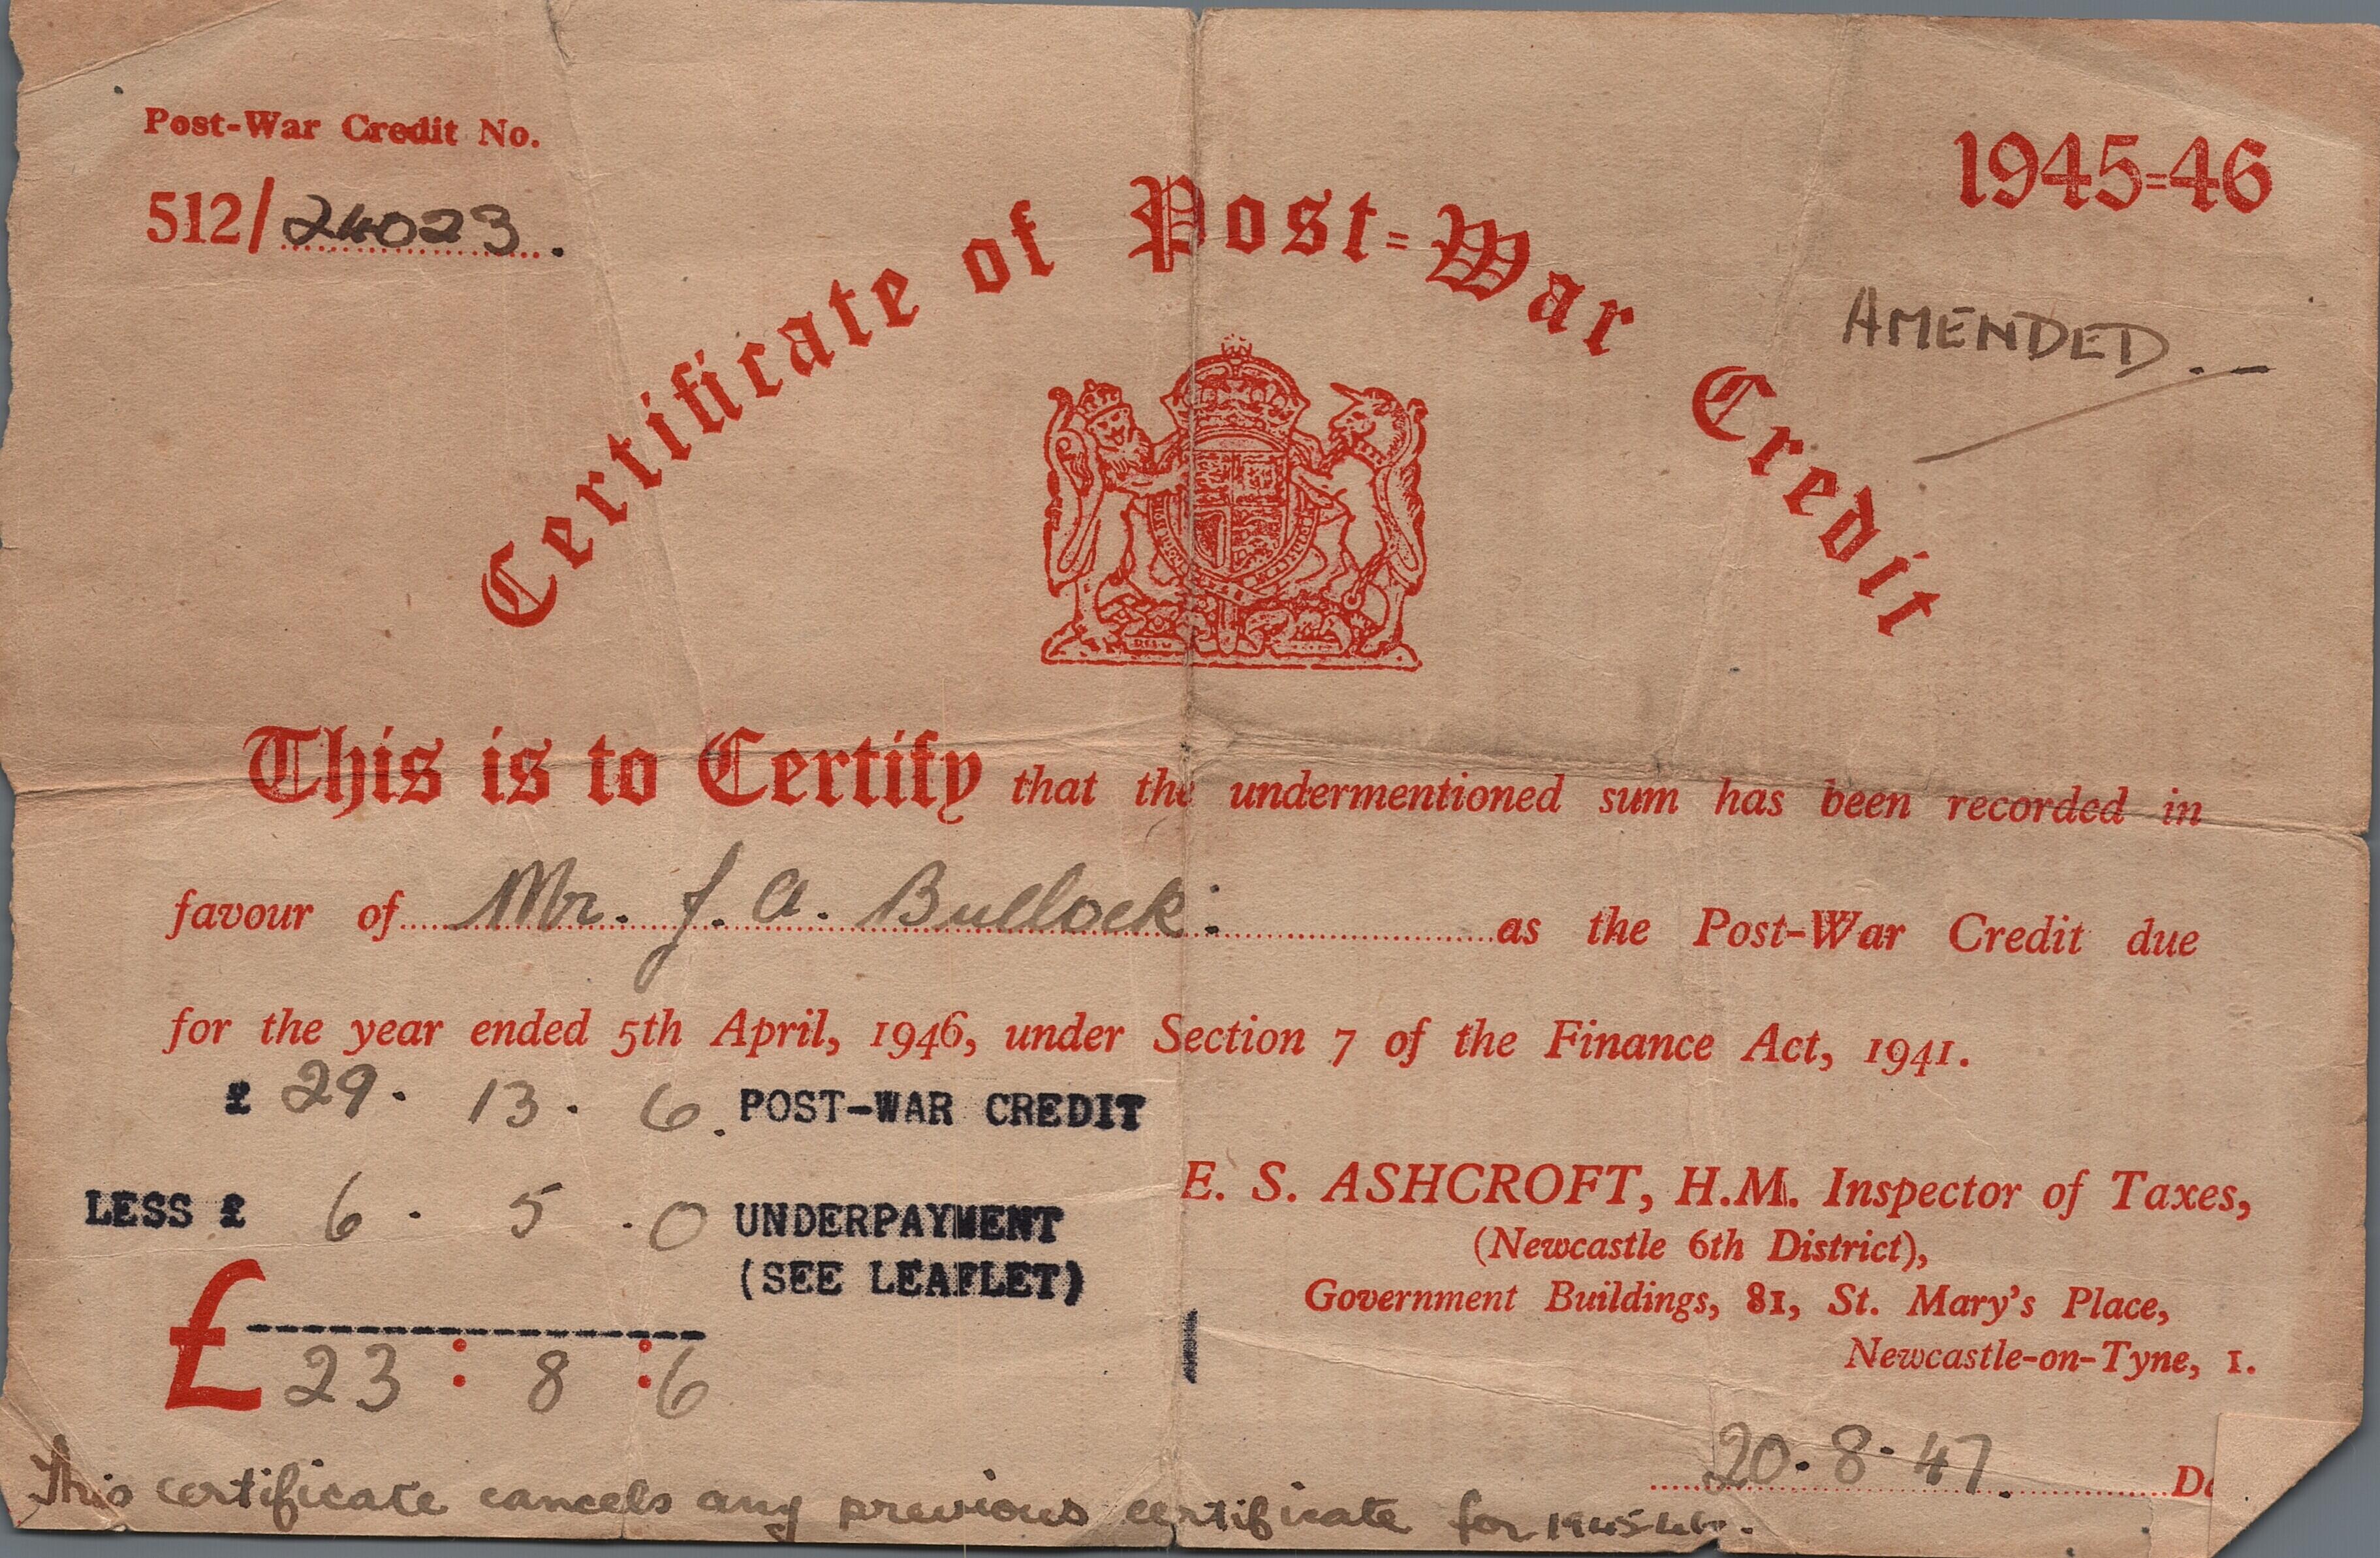 Post-War Credit No.
512/24023.
1945-46
AMENDED.—
Certificate of Post-War Credit
This is to Certify that the undermentioned sum has been recorded in
favour of Mr. J. A. Bullock. as the Post-War Credit due
for the year ended 5th April, 1946, under Section 7 of the Finance Act, 1941.
£ 29. 13. 6. POST-WAR CREDIT
LESS £ 6. 5. 0 UNDERPAYMENT
(SEE LEAFLET)
£ 23 : 8 : 6
E. S. ASHCROFT, H.M. Inspector of Taxes,
(Newcastle 6th District),
Government Buildings, 81, St. Mary's Place,
Newcastle-on-Tyne, 1.
20.8.47. Da
This certificate cancels any previous certificate for 1945-46.